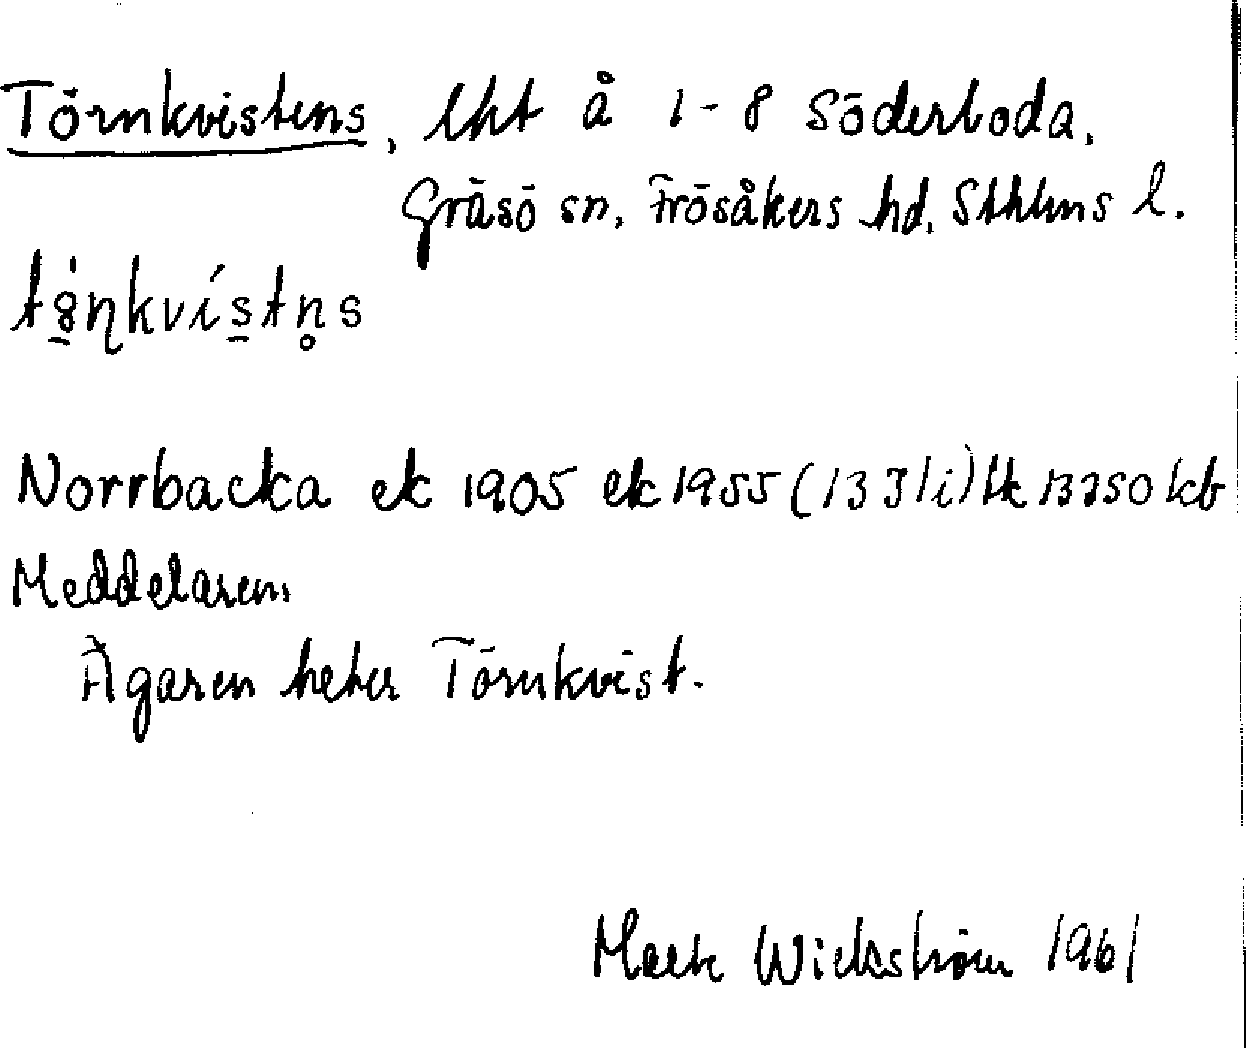 Törnkvistens, lht å 1-8 Söderboda,
Gräsö sn, Frösåkers hd, Sthlms l.
Norrbacka ek 1905 ek 1955 (13 I 1i) lk 13250 kb
Meddelaren,
Ägaren heter Törnkvist.
Wickström 1961